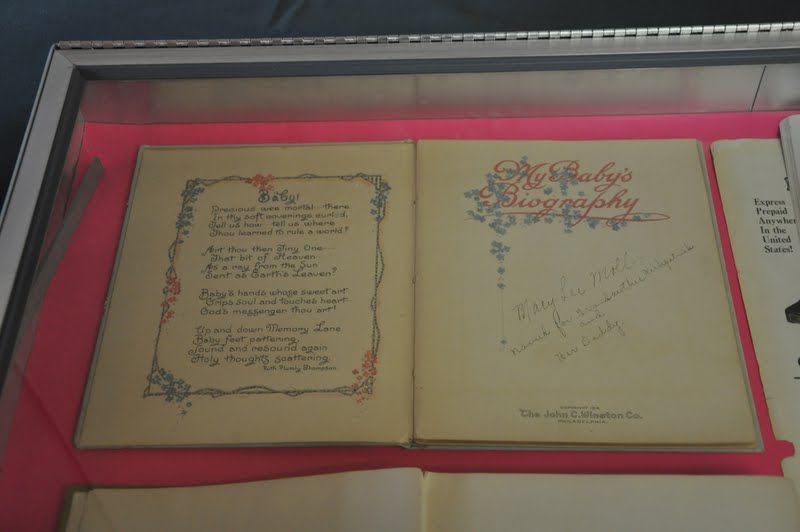 Baby!
Precious wee mortal there
In thy soft coverings curled,
Tell us how, tell us where
Thou learned to rule a world?
Art thou then Tiny One—
That bit of Heaven
As a ray from the Sun
Sent as Earth's Leaven?
Baby's hands whose sweet art
Grips soul and touches heart
God's messenger thou art!
Up and down Memory Lane
Baby feet pattering,
Sound and resound again
Holy thoughts scattering.
Ruth Thompson
My Baby's
Biography
Mary Lee Moll
named for Grandmother
and
Her Daddy
COPYRIGHT
The John C. Winston Co.
PHILADELPHIA
Express
Prepaid
Anywhere
In the
United
States!